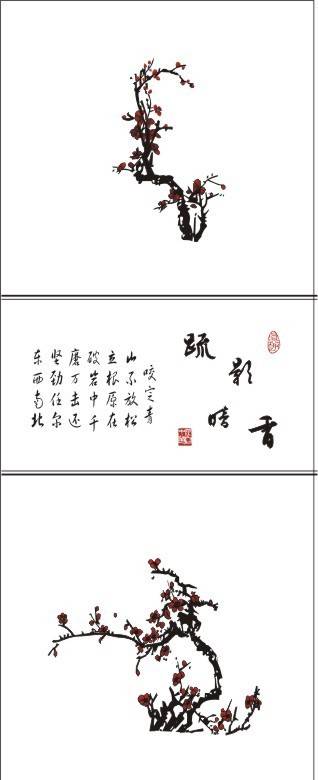 疏影暗香
咬定青
山不放松
立根原在
破岩中千
磨万击还
坚劲任尔
东西南北